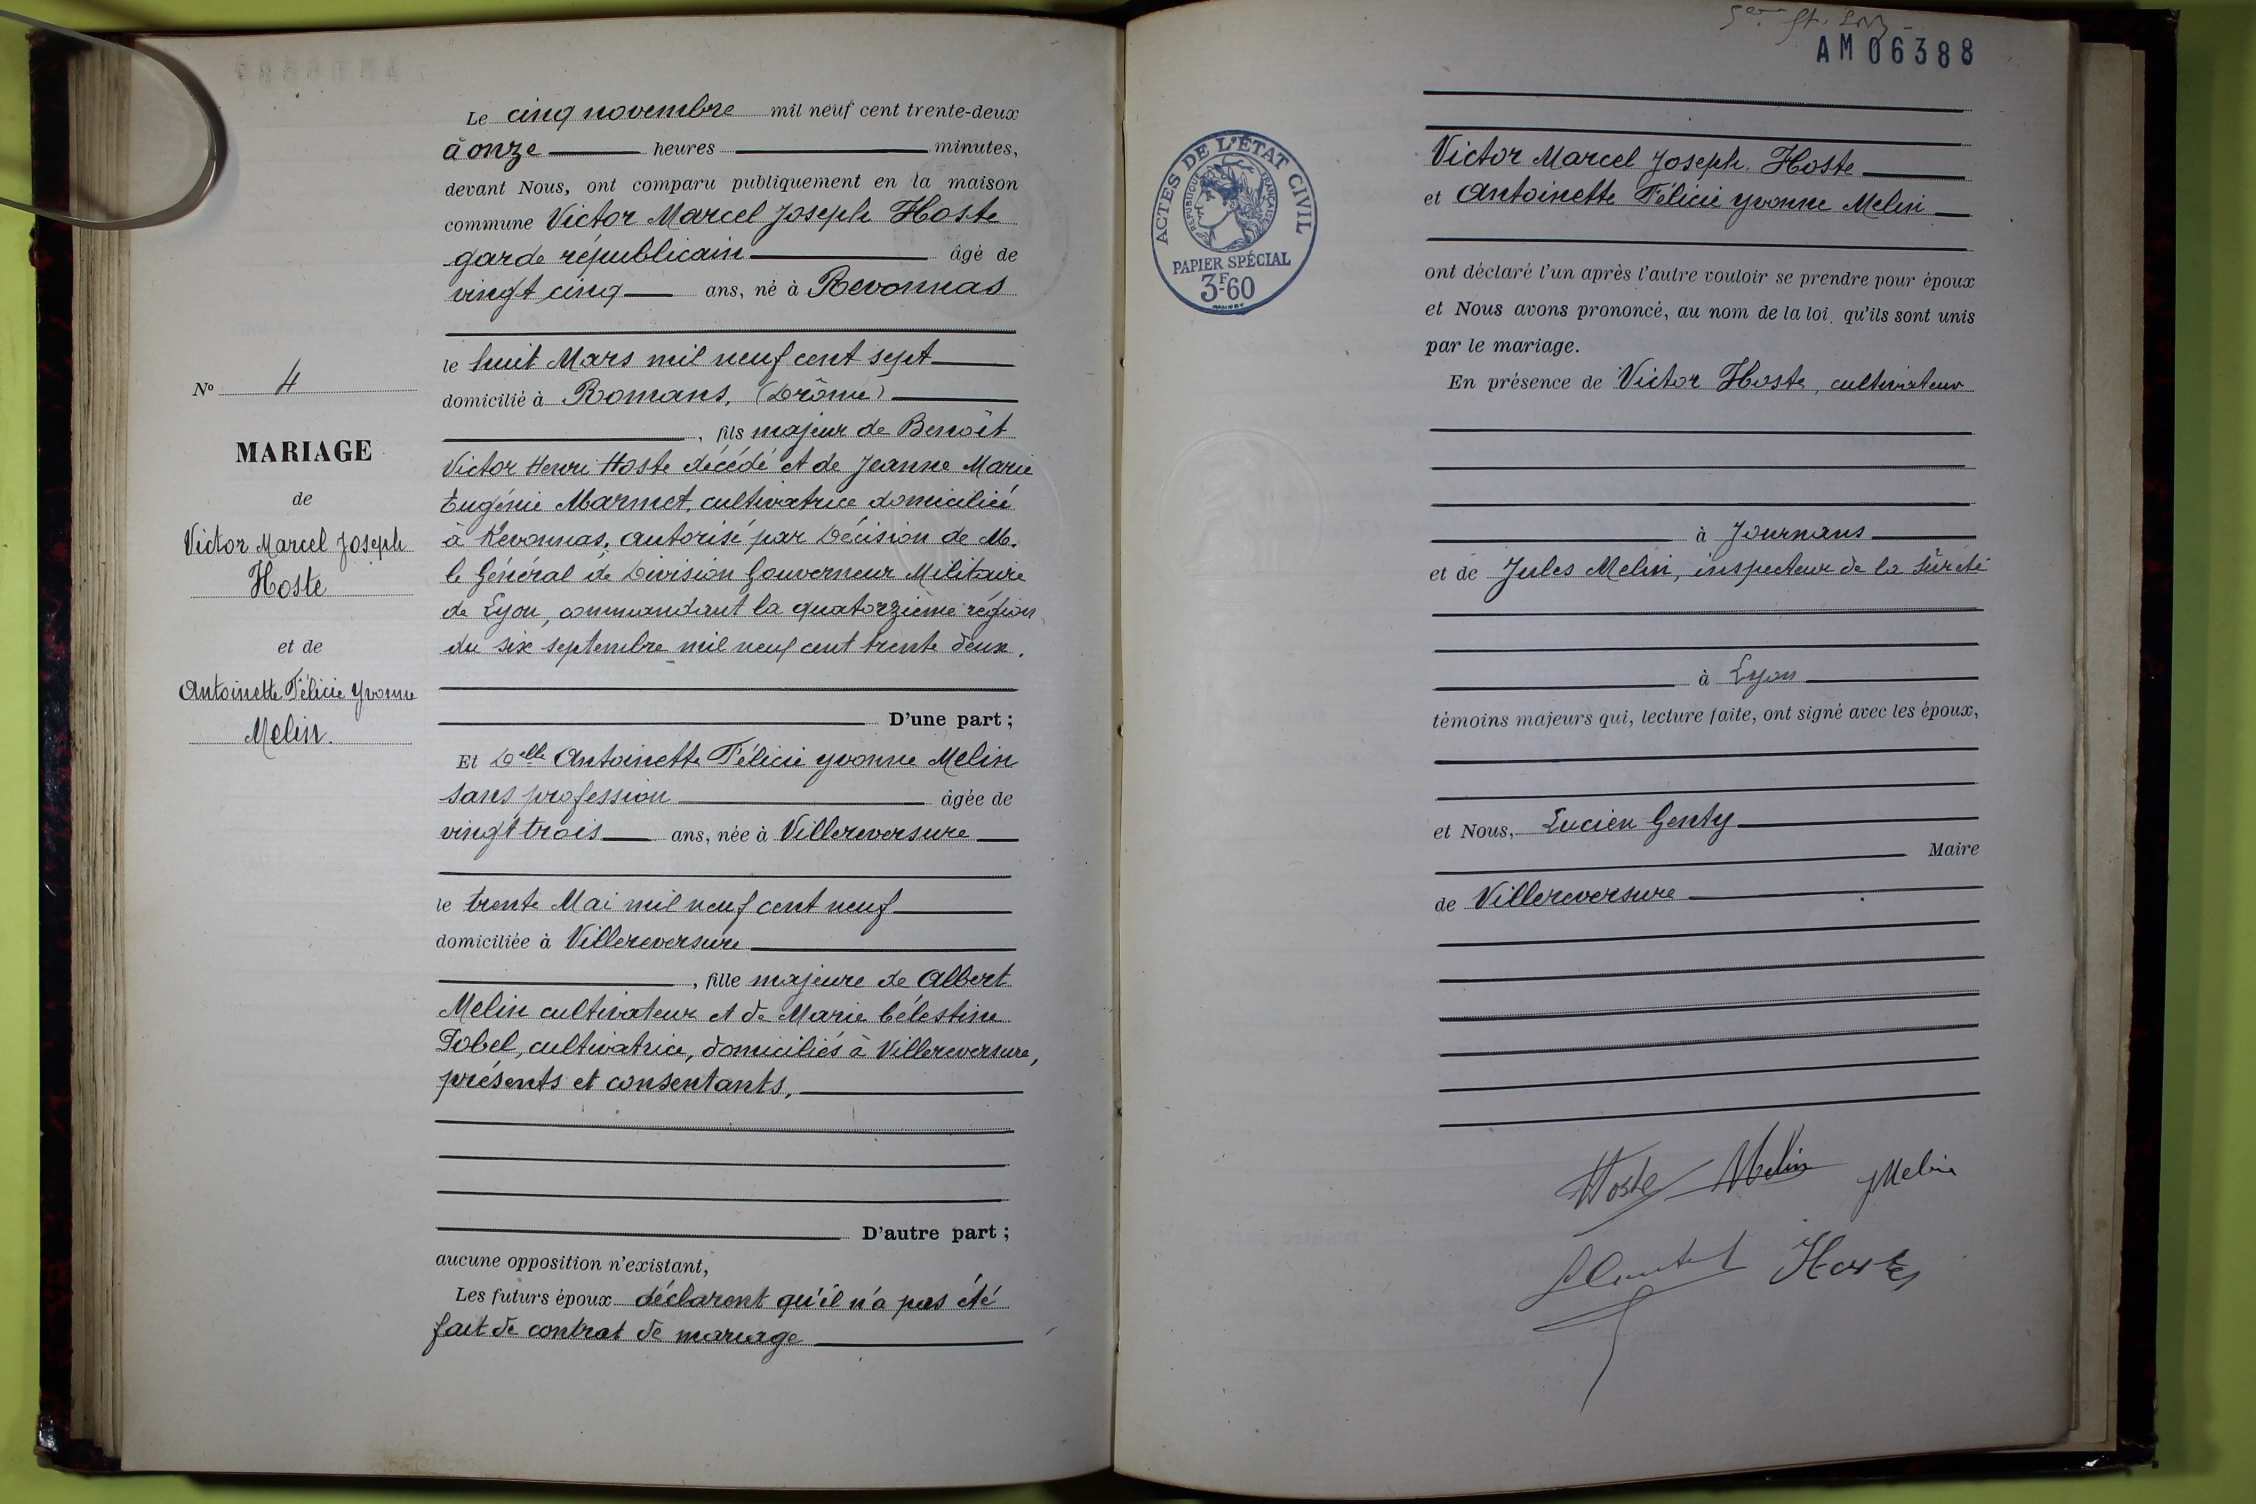 Le cinq novembre mil neuf cent trente-deux
à onze heures minutes,
devant Nous, ont comparu publiquement en la maison
commune Victor Marcel Joseph Hoste
garde républicain âgé de
vingt cinq ans, né à Revonnas
le huit Mars mil neuf cent sept
domicilié à Romans, (Drôme)
, fils majeur de Benoît
Victor Henri Hoste décédé et de Jeanne Marie
Eugénie Marmet, cultivatrice domiciliée
à Revonnas, autorisé par Décision de M.
le Général de Division Gouverneur Militaire
de Lyon, commandant la quatorzième région
du six septembre mil neuf cent trente deux.
D'une part ;
Et Delle Antoinette Félicie Yvonne Melin
sans profession âgée de
vingt trois ans, née à Villereversure
le trente Mai mil neuf cent neuf
domiciliée à Villereversure
, fille majeure de Albert
Melin cultivateur et de Marie Célestine
Sobel, cultivatrice, domiciliés à Villereversure,
présents et consentants,
D'autre part ;
aucune opposition n'existant,
Les futurs époux déclarent qu'il n'a pas été
fait de contrat de mariage
No 4
MARIAGE
de
Victor Marcel Joseph
Hoste
et de
Antoinette Félicie Yvonne
Melin.
AM 06388
ACTES DE L'ÉTAT CIVIL
RÉPUBLIQUE FRANÇAISE
PAPIER SPÉCIAL
3F-60
Victor Marcel Joseph Hoste
et Antoinette Félicie Yvonne Melin
ont déclaré l'un après l'autre vouloir se prendre pour époux
et Nous avons prononcé, au nom de la loi, qu'ils sont unis
par le mariage.
En présence de Victor Hoste, cultivateur
à Journans
et de Jules Melin, inspecteur de la Sûreté
à Lyon
témoins majeurs qui, lecture faite, ont signé avec les époux,
et Nous, Lucien Genty
Maire
de Villereversure
Hoste Melin JMelin
Hoste